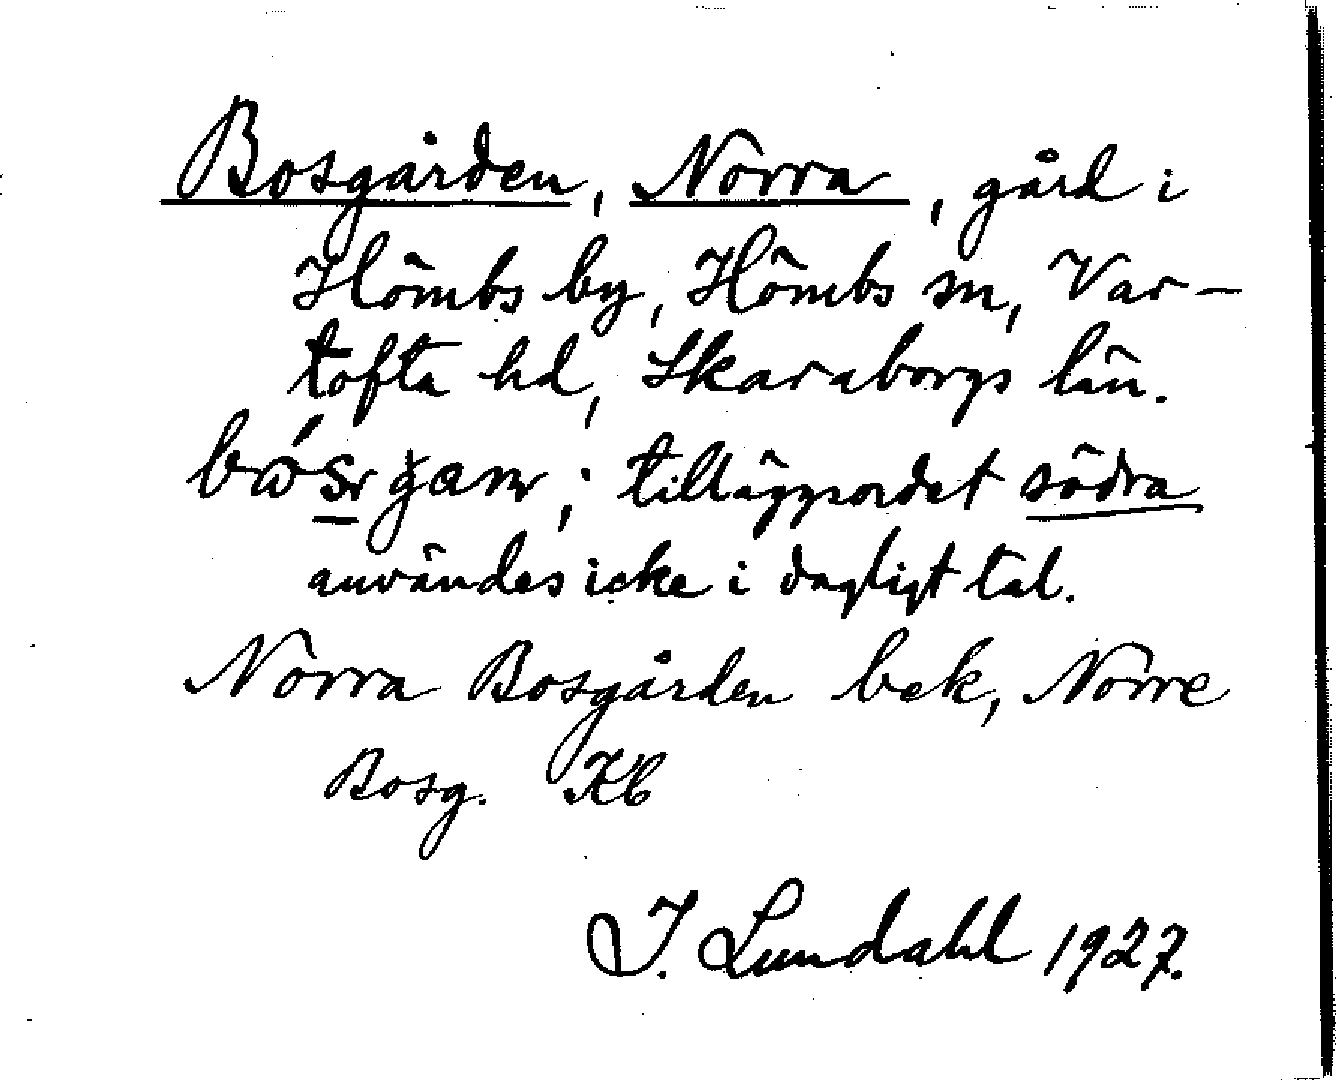 Bosgården, Norra, gård i
Hömbs by, Hömbs sn, Var-
tofta hd, Skaraborgs län.
; tilläggsordet södra
användes icke i dagligt tal.
Norra Bosgården bek, Norre
Bosg. Kb
I. Lundahl 1927.